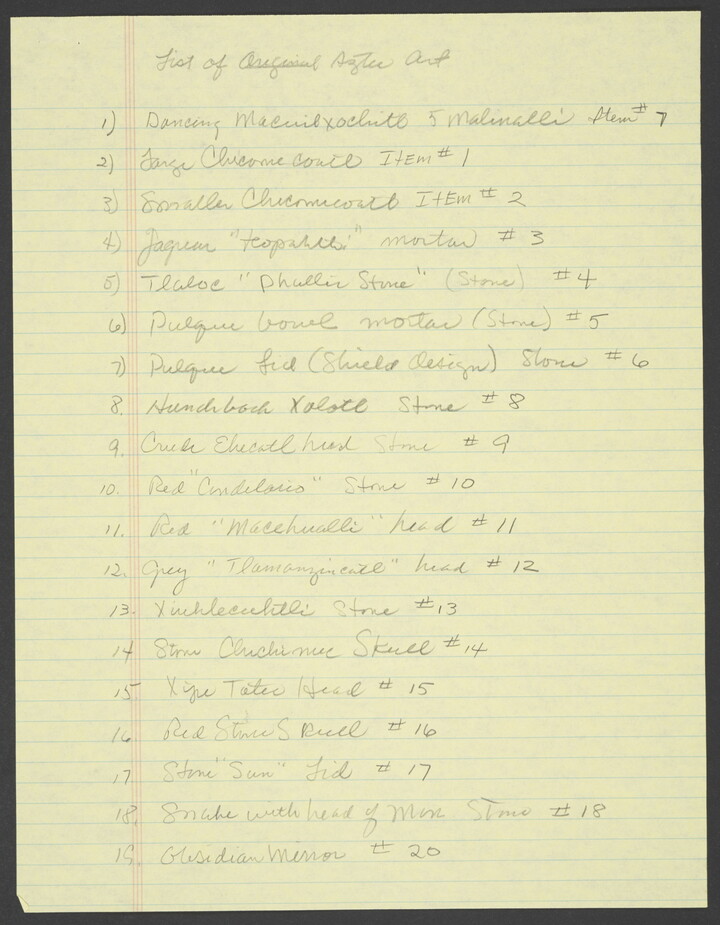 List of Original Aztec Art
1) Dancing Macuilxochitl 5 Malinalli Item # 7
2) Large Chicomecoatl Item # 1
3) Smaller Chicomecoatl Item # 2
4) Jaguar "teopahtli" mortar # 3
5) Tlaloc "Phallic Stone" (Stone) # 4
6) Pulque bowl mortar (Stone) # 5
7) Pulque Lid (Shield design) Stone # 6
8. Hunchback Xolotl Stone # 8
9. Crude Ehecatl head Stone # 9
10. Red "Candelario" Stone # 10
11. Red "Macehualli" head # 11
12. Grey "Tlamanzincatl" head # 12
13. Xiuhtecuhtli Stone # 13
14 Stone Chichimec Skull # 14
15. Xipe Totec Head # 15
16. Red Stone Skull # 16
17 Stone "Sun" Lid # 17
18. Snake with head of Man Stone # 18
19. Obsidian Mirror # 20